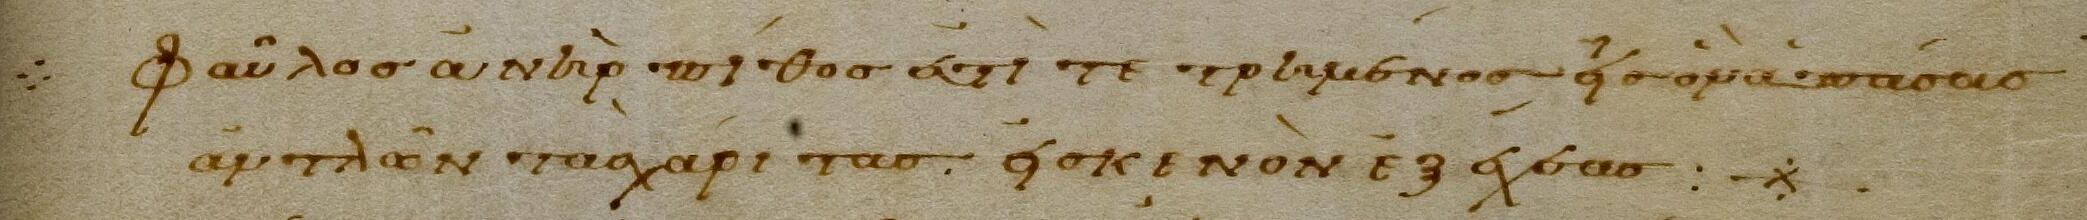 Φαῦλος ἀνὴρ πίθος ἐστὶ τετρημένος εἰς ὃν ἁπάσας
ἀντλῶν τὰς χάριτας. εἰς κενὸν ἐξέχεας :